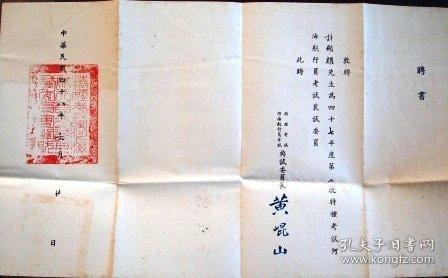 聘書
敦聘
計朝鐸先生為四十七年度第二次特種考試河
海航行員考試襄試委員
此聘
特種考試
河海航行員考試 典試委員長 黃崐山
中華民國四十八年 六月 廿 日
孔夫子旧书网
www.kongfz.com